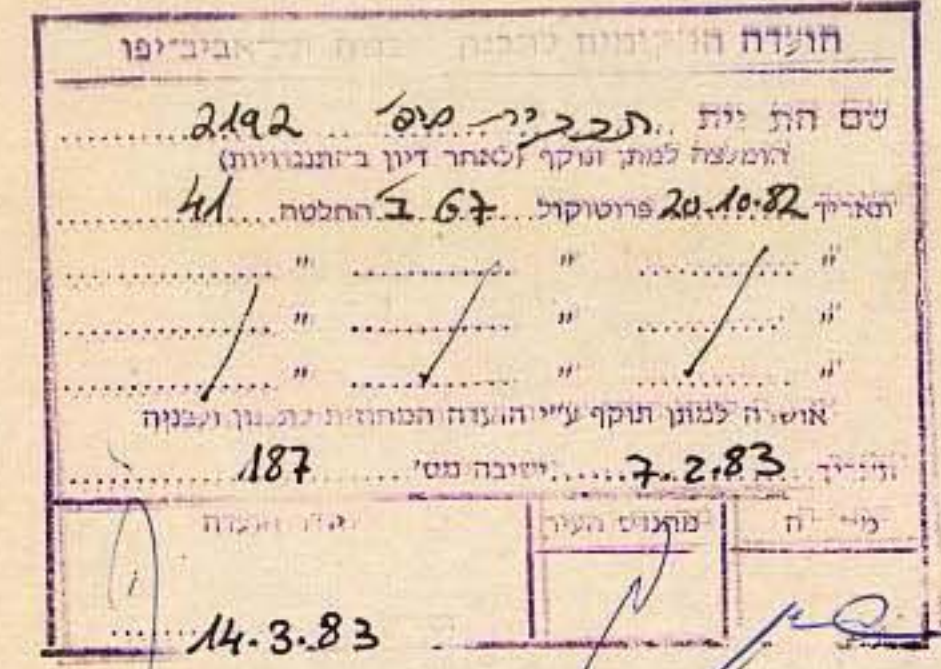 הועדה המקומית לתכנון ובניה תל-אביב-יפו
שם התכנית תכנית מס' 2192
הומלצה למתן תוקף (לאחר דיון בהתנגדויות)
תאריך 20.10.82 פרוטוקול 67 ב' החלטה 41
" " "
" " "
" " "
אושרה למתן תוקף ע"י הועדה המחוזית לתכנון ולבניה
תאריך 7.2.83 ישיבה מס' 187
מהנדס העיר הועדה
14.3.83